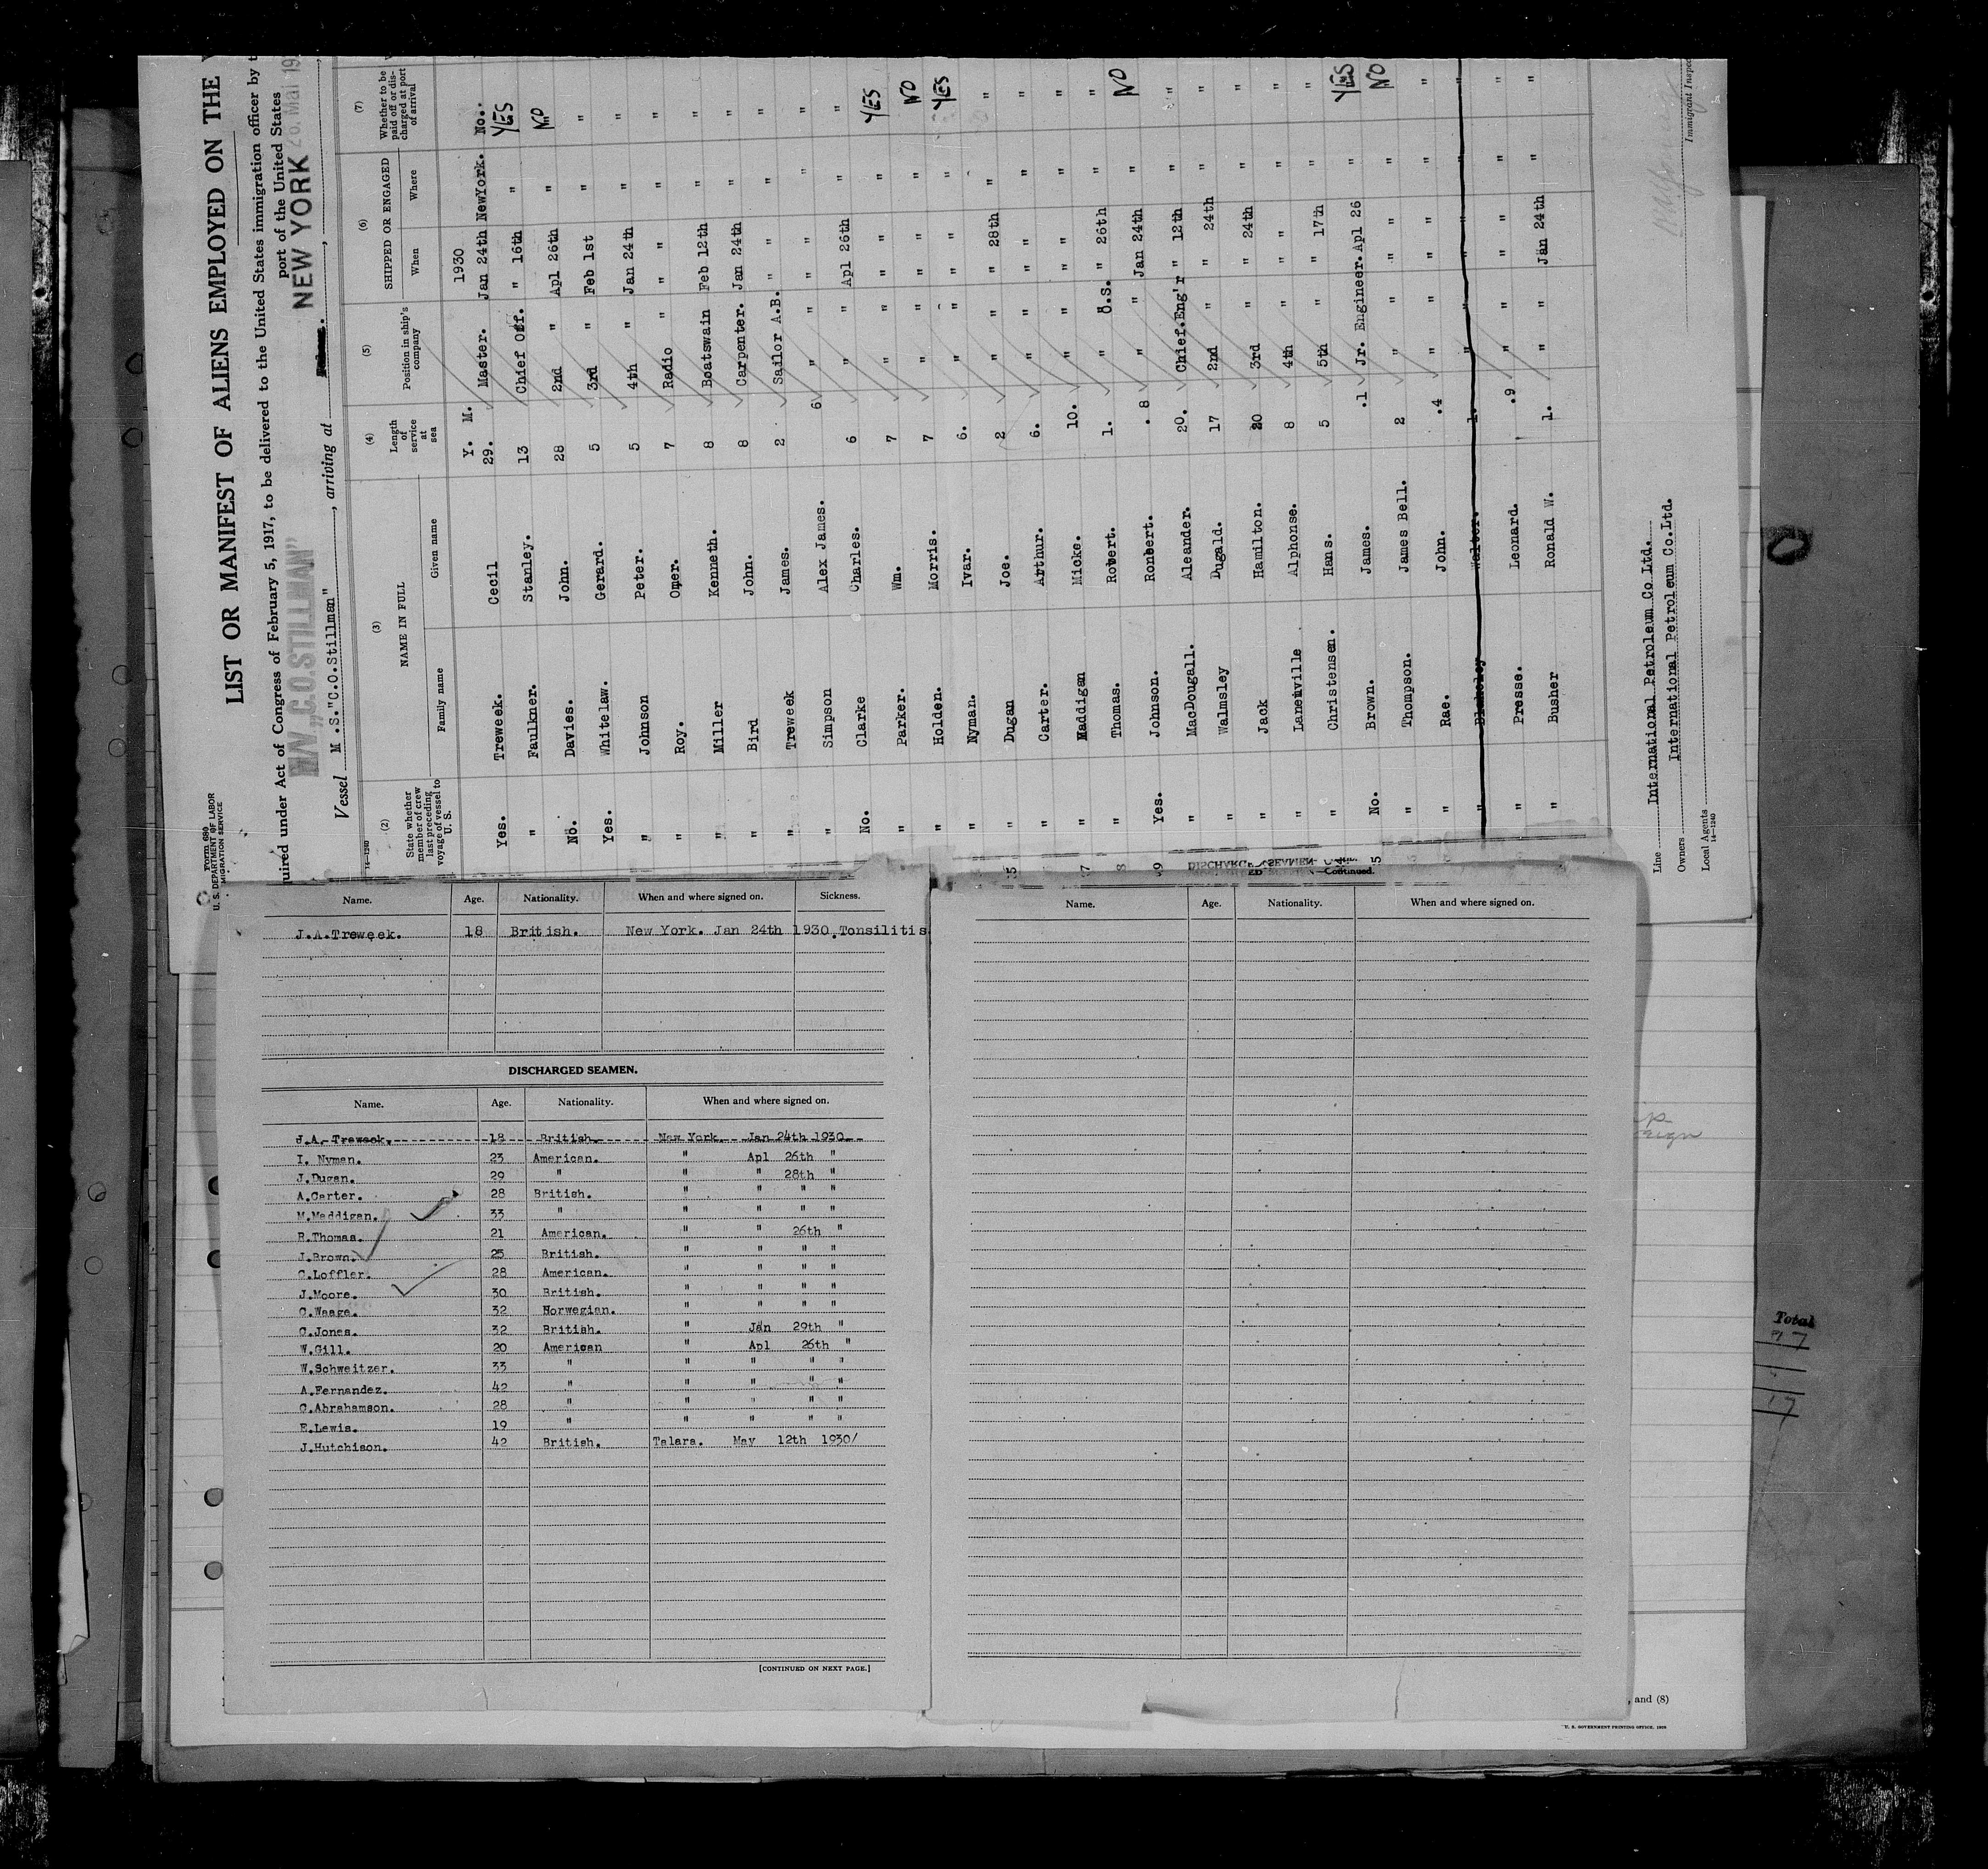 Form 680
U. S. DEPARTMENT OF LABOR
MIGRATION SERVICE
LIST OR MANIFEST OF ALIENS EMPLOYED ON THE
quired under Act of Congress of February 5, 1917, to be delivered to the United States immigration officer by t
port of the United States
M/V. „C.O.STILLMAN"
NEW YORK
Vessel M.S."C.O.Stillman", arriving at
14—1240
(2) (3) (4) (5) (6) (7)
State whether member of crew last preceding voyage of vessel to U. S.
NAME IN FULL
Family name Given name
Length of service at sea
Position in ship's company
SHIPPED OR ENGAGED
When Where
Whether to be paid off or discharged at port of arrival
Y. M. 1930
Yes. Treweek. Cecil 29. Master. Jan 24th NewYork. No.
" Faulkner. Stanley. 13 Chief Off. " 16th " YES
No. Davies. John. 28 2nd " Apl 26th " NO
Yes. Whitelaw. Gerard. 5 3rd " Feb 1st " "
" Johnson Peter. 5 4th " Jan 24th " "
" Roy. Omer. 7 Radio " " " "
" Miller Kenneth. 8 Boatswain Feb 12th " "
" Bird John. 8 Carpenter. Jan 24th " "
" Treweek James. 2 Sailor A.B. " " " "
" Simpson Alex James. 6 " " " " " "
No. Clarke Charles. 6 " " Apl 26th " "
" Parker. Wm. 7 " " " " " YES
" Holden. Morris. 7 " " " " " NO
" Nyman. Ivar. 6. " " " " " YES
" Dugan Joe. 2 " " " 28th " "
" Carter. Arthur. 6. " " " " " "
" Maddigan Micke. 10. " " " " " "
" Thomas. Robert. 1. " O.S. " 26th " "
Yes. Johnson. Robert. .8 " " Jan 24th " NO
" MacDougall. Aleander. 20. Chief.Eng'r " 12th " "
" Walmsley Dugald. 17 2nd " " 24th " "
" Jack Hamilton. 20 3rd " " 24th " "
" Laneuville Alphonse. 8 4th " " " " "
" Christensen. Hans. 5 5th " " 17th " "
No. Brown. James. .1 Jr. Engineer. Apl 26 " YES
" Thompson. James Bell. 2 " " " " " NO
" Rae. John. .4 " " " " " "
" Blakeley Walter. 1. " " " " " "
" Presse. Leonard. .9 " " " " " "
" Busher Ronald W. 1. " " Jan 24th " "
Line International Petroleum Co Ltd.
Owners International Petroleum Co.Ltd.
Local Agents
14—1240
Immigrant Inspec
Name. Age. Nationality. When and where signed on. Sickness.
J.A.Treweek. 18 British. New York. Jan 24th 1930. Tonsilitis
DISCHARGED SEAMEN.
Name. Age. Nationality. When and where signed on.
J.A. Treweek. 18 British New York Jan 24th 1930
I. Nyman. 23 American. " Apl 26th "
J.Dugan. 29 " " " 28th "
A.Carter. 28 British. " " " "
M.Maddigan. 33 " " " " "
R.Thomas. 21 American. " " 26th "
J.Brown. 25 British. " " " "
C.Loffler. 28 American. " " " "
J.Moore. 30 British. " " " "
C.Waage. 32 Norwegian. " " " "
C.Jones. 32 British. " Jan 29th "
W.Gill. 20 American " Apl 26th "
W.Schweitzer. 33 " " " " "
A.Fernandez. 42 " " " " "
C.Abrahamson. 28 " " " " "
E.Lewis. 19 " " " " "
J.Hutchison. 42 British. Talara. May 12th 1930/
[CONTINUED ON NEXT PAGE.]
DISCHARGED SEAMEN
—Continued.
Name. Age. Nationality. When and where signed on.
Total
17
, and (8)
U. S. GOVERNMENT PRINTING OFFICE.